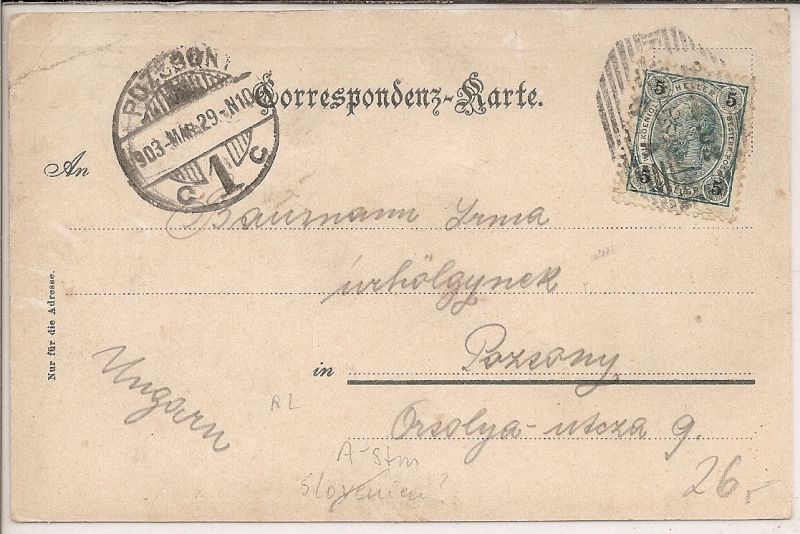 POZSONY
903-MAR.29-N10
C 1 C
Correspondenz-Karte.
5 HELLER 5
5 5
An
Bauzmann Irma
úrhölgynek
Nur für die Adresse.
in Pozsony
Ungarn
AL
Orsolya-utcza 9.
A-Stm
Slovenien?
26,-